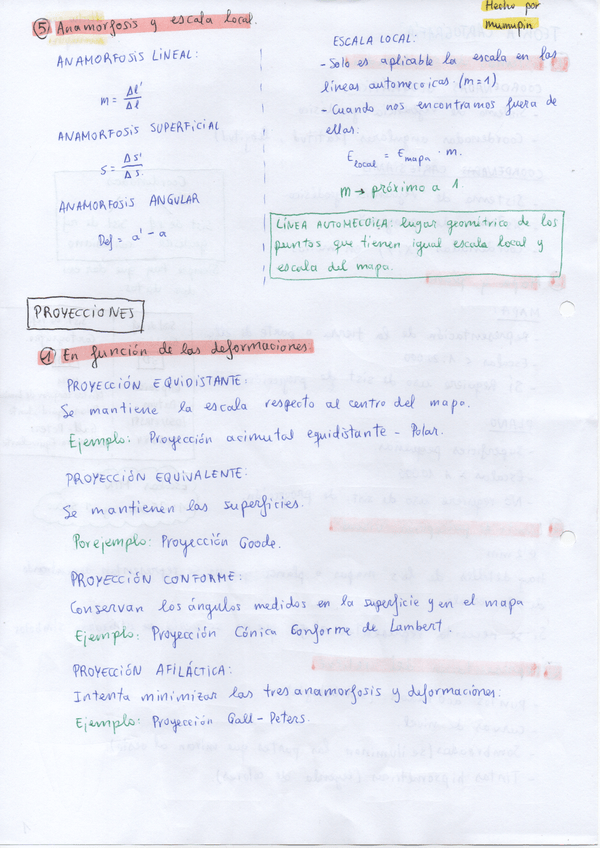 Hecho por
mumupin
5 Anamorfosis y escala local.
ANAMORFOSIS LINEAL:
m = Δl' / Δl
ANAMORFOSIS SUPERFICIAL
S = Δs' / Δs.
ANAMORFOSIS ANGULAR
Def = a' - a
ESCALA LOCAL:
- Solo es aplicable la escala en las
líneas automecoicas. (m=1)
- Cuando nos encontramos fuera de
ellas:
E local = E mapa · m.
m → próximo a 1.
LÍNEA AUTOMECOICA: lugar geométrico de los
puntos que tienen igual escala local y
escala del mapa.
PROYECCIONES
1 En función de las deformaciones.
PROYECCIÓN EQUIDISTANTE:
Se mantiene la escala respecto al centro del mapa.
Ejemplo: Proyección acimutal equidistante - Polar.
PROYECCIÓN EQUIVALENTE:
Se mantienen las superficies.
Por ejemplo: Proyección Goode.
PROYECCIÓN CONFORME:
Conservan los ángulos medidos en la superficie y en el mapa
Ejemplo: Proyección Cónica Conforme de Lambert.
PROYECCIÓN AFILÁCTICA:
Intenta minimizar las tres anamorfosis y deformaciones.
Ejemplo: Proyección Gall-Peters.